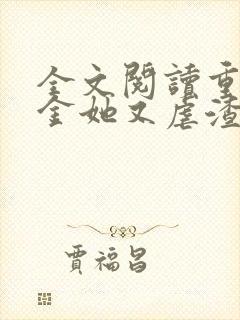 全文閱讀重
金她又虐渣
賈福昌